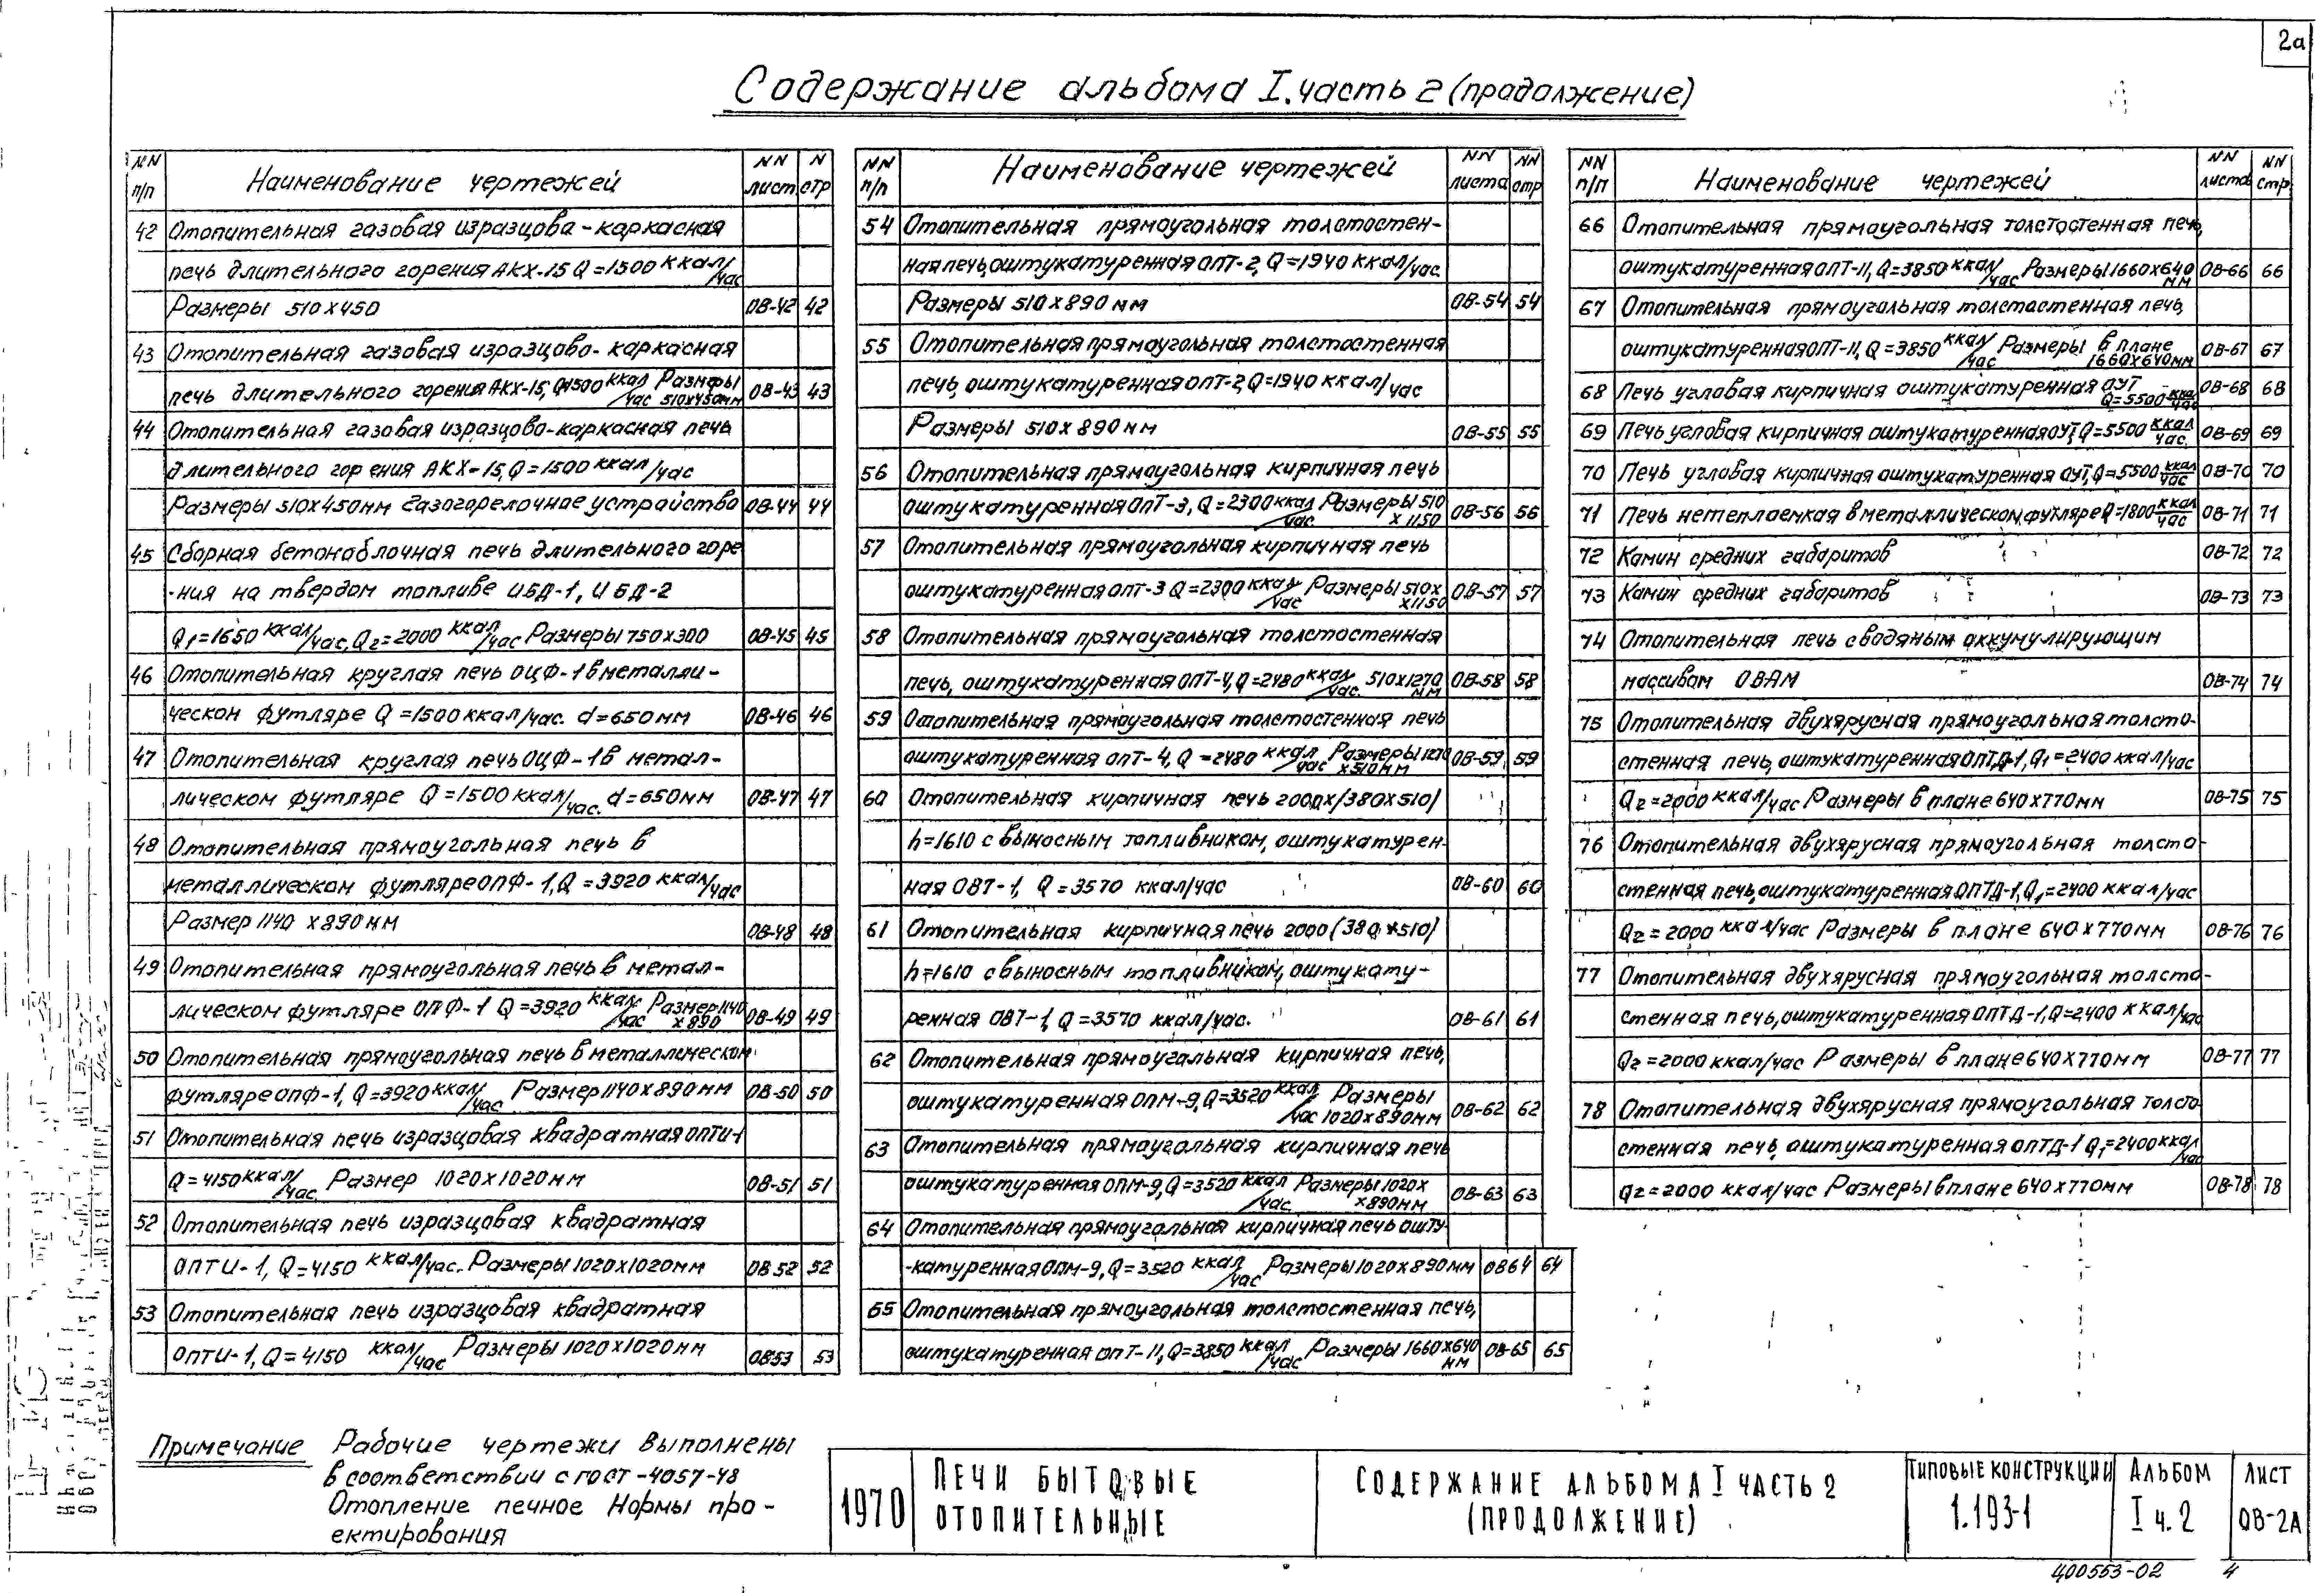 2а
Содержание альбома I. часть 2 (продолжение)
NN п/п Наименование чертежей NN лист N стр
42 Отопительная газовая изразцова-каркасная
печь длительного горения АКХ-15 Q=1500 ккал/час
Размеры 510х450 ОВ-42 42
43 Отопительная газовая изразцово-каркасная
печь длительного горения АКХ-15, Q=1500 ккал/час Размеры 510х450мм ОВ-43 43
44 Отопительная газовая изразцово-каркасная печь
длительного горения АКХ-15, Q=1500 ккал/час
Размеры 510х450мм Газогорелочное устройство ОВ-44 44
45 Сборная бетоноблочная печь длительного горе
-ния на твердом топливе ИБД-1, ИБД-2
Q1=1650 ккал/час, Q2=2000 ккал/час Размеры 750х300 ОВ-45 45
46 Отопительная круглая печь ОЦФ-1 в металли-
ческом футляре Q=1500 ккал/час. d=650мм ОВ-46 46
47 Отопительная круглая печь ОЦФ-1 в метал-
лическом футляре Q=1500 ккал/час. d=650мм ОВ-47 47
48 Отопительная прямоугольная печь в
металлическом футляре ОПФ-1, Q=3920 ккал/час
Размер 1140 х890мм ОВ-48 48
49 Отопительная прямоугольная печь в метал-
лическом футляре ОПФ-1 Q=3920 ккал/час Размер 1140 х890 ОВ-49 49
50 Отопительная прямоугольная печь в металлическом
футляре ОПФ-1, Q=3920 ккал/час Размер 1140х890мм ОВ-50 50
51 Отопительная печь изразцовая квадратная ОПТИ-1
Q=4150 ккал/час Размер 1020х1020мм ОВ-51 51
52 Отопительная печь изразцовая квадратная
ОПТИ-1, Q=4150 ккал/час. Размеры 1020х1020мм ОВ 52 52
53 Отопительная печь изразцовая квадратная
ОПТИ-1, Q=4150 ккал/час Размеры 1020х1020мм ОВ53 53
NN п/п Наименование чертежей NN листа NN стр
54 Отопительная прямоугольная толстостен-
ная печь, оштукатуренная ОПТ-2, Q=1940 ккал/час
Размеры 510х890мм ОВ-54 54
55 Отопительная прямоугольная толстостенная
печь, оштукатуренная ОПТ-2, Q=1940 ккал/час
Размеры 510х890мм ОВ-55 55
56 Отопительная прямоугольная кирпичная печь
оштукатуренная ОПТ-3, Q=2300 ккал/час Размеры 510 х1150 ОВ-56 56
57 Отопительная прямоугольная кирпичная печь
оштукатуренная ОПТ-3 Q=2300 ккал/час Размеры 510х х1150 ОВ-57 57
58 Отопительная прямоугольная толстостенная
печь, оштукатуренная ОПТ-4, Q=2480 ккал/час. 510х1270 мм ОВ-58 58
59 Отопительная прямоугольная толстостенная печь
оштукатуренная ОПТ-4, Q=2480 ккал/час Размеры 1270 х510мм ОВ-59 59
60 Отопительная кирпичная печь 2000х/380х510/
h=1610 с выносным топливником, оштукатурен-
ная ОВТ-1, Q=3570 ккал/час ОВ-60 60
61 Отопительная кирпичная печь 2000 (380 х510)
h=1610 с выносным топливником, оштукату-
ренная ОВТ-1, Q=3570 ккал/час. ОВ-61 61
62 Отопительная прямоугольная кирпичная печь,
оштукатуренная ОПМ-9, Q=3520 ккал/час Размеры 1020х890мм ОВ-62 62
63 Отопительная прямоугольная кирпичная печь
оштукатуренная ОПМ-9, Q=3520 ккал/час Размеры 1020х х890мм ОВ-63 63
64 Отопительная прямоугольная кирпичная печь ошту-
-катуренная ОПМ-9, Q=3520 ккал/час Размеры 1020х890мм ОВ64 64
65 Отопительная прямоугольная толстостенная печь,
оштукатуренная ОПТ-11, Q=3850 ккал/час Размеры 1660х640 мм ОВ-65 65
NN п/п Наименование чертежей NN листа NN стр
66 Отопительная прямоугольная толстостенная печь,
оштукатуренная ОПТ-11, Q=3850 ккал/час Размеры 1660х640 мм ОВ-66 66
67 Отопительная прямоугольная толстостенная печь,
оштукатуренная ОПТ-11, Q=3850 ккал/час Размеры в плане 1660х640мм ОВ-67 67
68 Печь угловая кирпичная оштукатуренная ОУТ Q=5500 ккал/час ОВ-68 68
69 Печь угловая кирпичная оштукатуренная ОУТ, Q=5500 ккал/час. ОВ-69 69
70 Печь угловая кирпичная оштукатуренная ОУТ, Q=5500 ккал/час ОВ-70 70
71 Печь нетеплоемкая в металлическом футляре Q=1800 ккал/час ОВ-71 71
72 Камин средних габаритов ОВ-72 72
73 Камин средних габаритов ОВ-73 73
74 Отопительная печь с водяным аккумулирующим
массивом ОВАМ ОВ-74 74
75 Отопительная двухярусная прямоугольная толсто-
стенная печь, оштукатуренная ОПТД-1, Q1=2400 ккал/час
Q2=2000 ккал/час Размеры в плане 640х770мм ОВ-75 75
76 Отопительная двухярусная прямоугольная толсто-
стенная печь, оштукатуренная ОПТД-1, Q1=2400 ккал/час
Q2=2000 ккал/час Размеры в плане 640х770мм ОВ-76 76
77 Отопительная двухярусная прямоугольная толсто-
стенная печь, оштукатуренная ОПТД-1, Q=2400 ккал/час
Q2=2000 ккал/час Размеры в плане 640х770мм ОВ-77 77
78 Отопительная двухярусная прямоугольная толсто
стенная печь, оштукатуренная ОПТД-1 Q1=2400 ккал/час
Q2=2000 ккал/час Размеры в плане 640х770мм ОВ-78 78
Примечание Рабочие чертежи выполнены
в соответствии с ГОСТ-4057-48
Отопление печное Нормы про-
ектирования
1970 ПЕЧИ БЫТОВЫЕ ОТОПИТЕЛЬНЫЕ
СОДЕРЖАНИЕ АЛЬБОМА I ЧАСТЬ 2 (ПРОДОЛЖЕНИЕ)
ТИПОВЫЕ КОНСТРУКЦИИ 1.193-1
АЛЬБОМ I ч.2
ЛИСТ ОВ-2А
400553-02 4